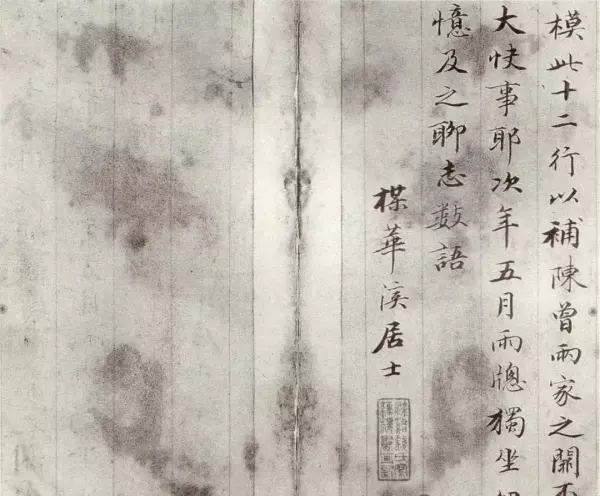 模此十二行以補陳曾兩家之闕
大快事耶次年五月雨牕獨坐
憶及之聊志數語
華溪居士